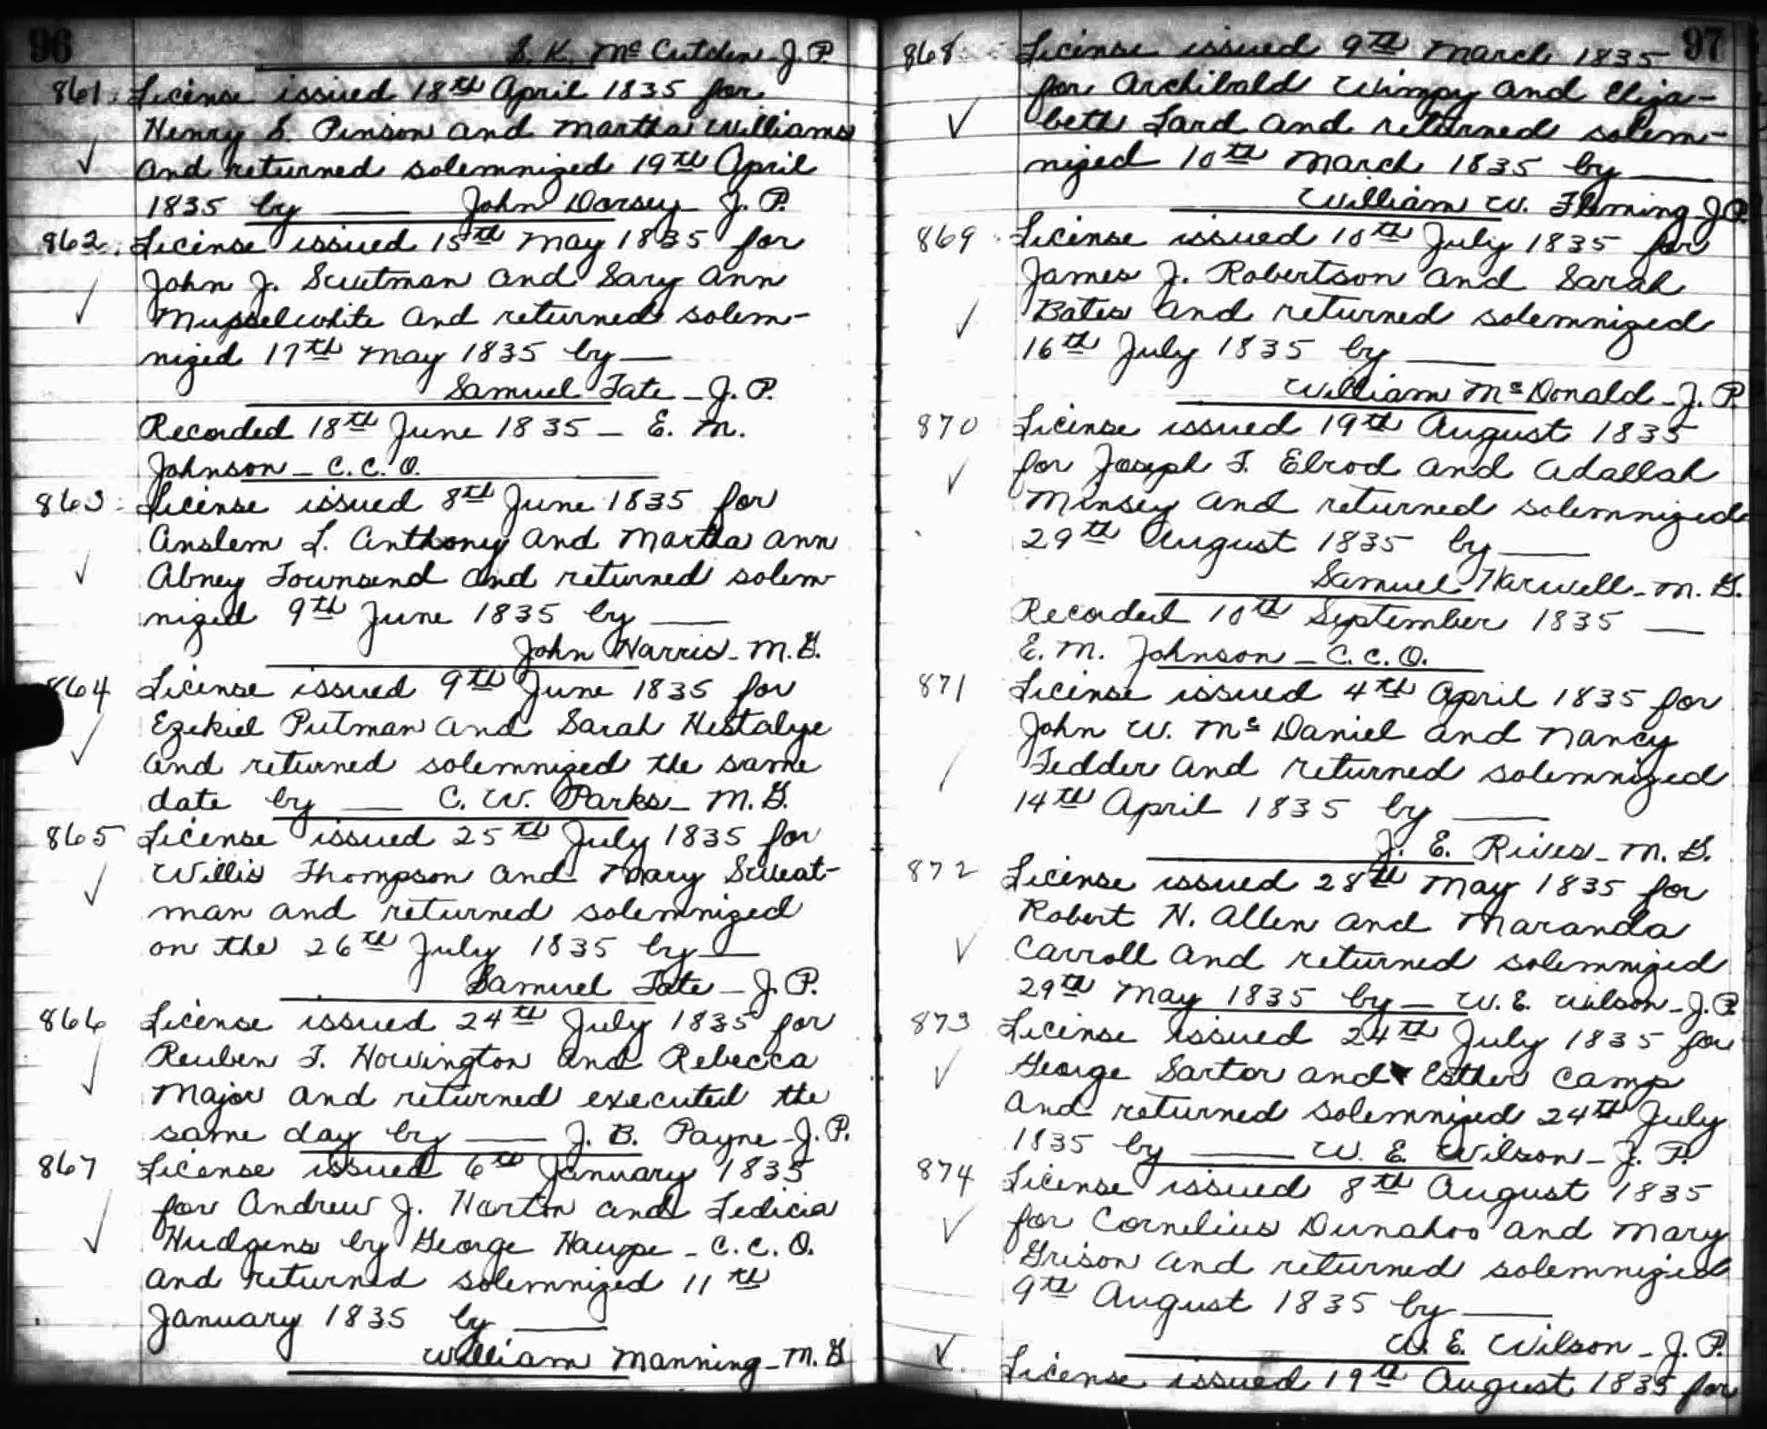 96
S. K. McCutchen - J. P.
861. License issued 18th April 1835 for
Henry S. Pinson and Martha Williams
and returned solemnized 19th April
1835 by — John Dorsey - J. P.
862. License issued 15th May 1835 for
John J. Swetman and Sary Ann
Musselwhite and returned solem-
nized 17th May 1835 by —
Samuel Tate - J. P.
Recorded 18th June 1835 - E. M.
Johnson - C. C. O.
863. License issued 8th June 1835 for
Anslem L. Anthony and Martha Ann
Abney Townsend and returned solem-
nized 9th June 1835 by —
John Harris - M. G.
864 License issued 9th June 1835 for
Ezekiel Putman and Sarah Hestalye
and returned solemnized the same
date by — C. W. Parks - M. G.
865 License issued 25th July 1835 for
Willis Thompson and Mary Sweat-
man and returned solemnized
on the 26th July 1835 by —
Samuel Tate - J. P.
866 License issued 24th July 1835 for
Reuben T. Howington and Rebecca
Major and returned executed the
same day by — J. B. Payne - J. P.
867 License issued 6th January 1835
for Andrew J. Horton and Ledicia
Hudgens by George Haupe - C. C. O.
and returned solemnized 11th
January 1835 by —
William Manning - M. G
97
868. License issued 9th March 1835
for Archibald Wimpy and Eliza-
beth Lard and returned solem-
nized 10th March 1835 by —
William W. Fleming J. P.
869. License issued 10th July 1835 for
James J. Robertson and Sarah
Bates and returned solemnized
16th July 1835 by —
William McDonald - J. P.
870 License issued 19th August 1835
for Joseph T. Elrod and Adallah
Minsey and returned solemnized
29th August 1835 by —
Samuel Harwell - M. G.
Recorded 10th September 1835 —
E. M. Johnson - C. C. O.
871 License issued 4th April 1835 for
John W. McDaniel and Nancy
Tedder and returned solemnized
14th April 1835 by —
J. E. Rives - M. G.
872 License issued 28th May 1835 for
Robert H. Allen and Maranda
Carroll and returned solemnized
29th May 1835 by — W. E. Wilson - J. P
873 License issued 24th July 1835 for
George Sartor and Esther Camp
and returned solemnized 24th July
1835 by — W. E. Wilson - J. P.
874 License issued 8th August 1835
for Cornelius Dunahoo and Mary
Grison and returned solemnized
9th August 1835 by —
W. E. Wilson - J. P.
License issued 19th August 1835 for